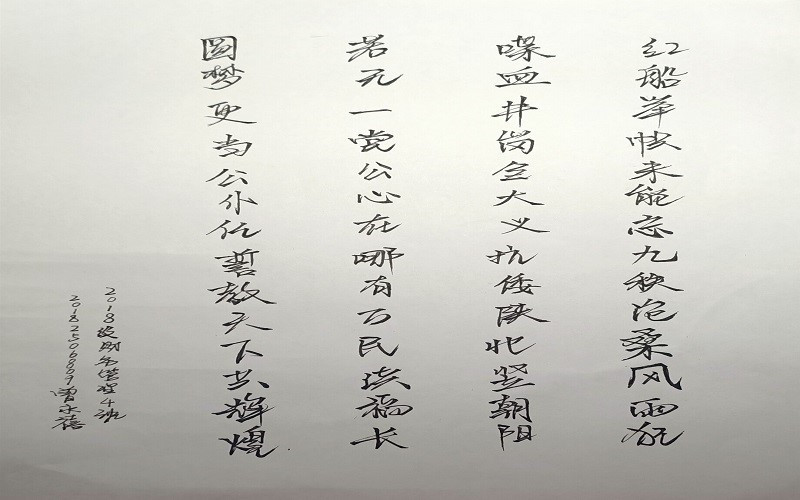 红船举帜未能忘九秩沧桑风雨狂
喋血井岗全大义抗倭陕北竖朝阳
若元一党公心在哪有万民洪福长
圆梦更当公仆任誓教天下共辉煌
2018级财务管理4班
20182506889曾永禧